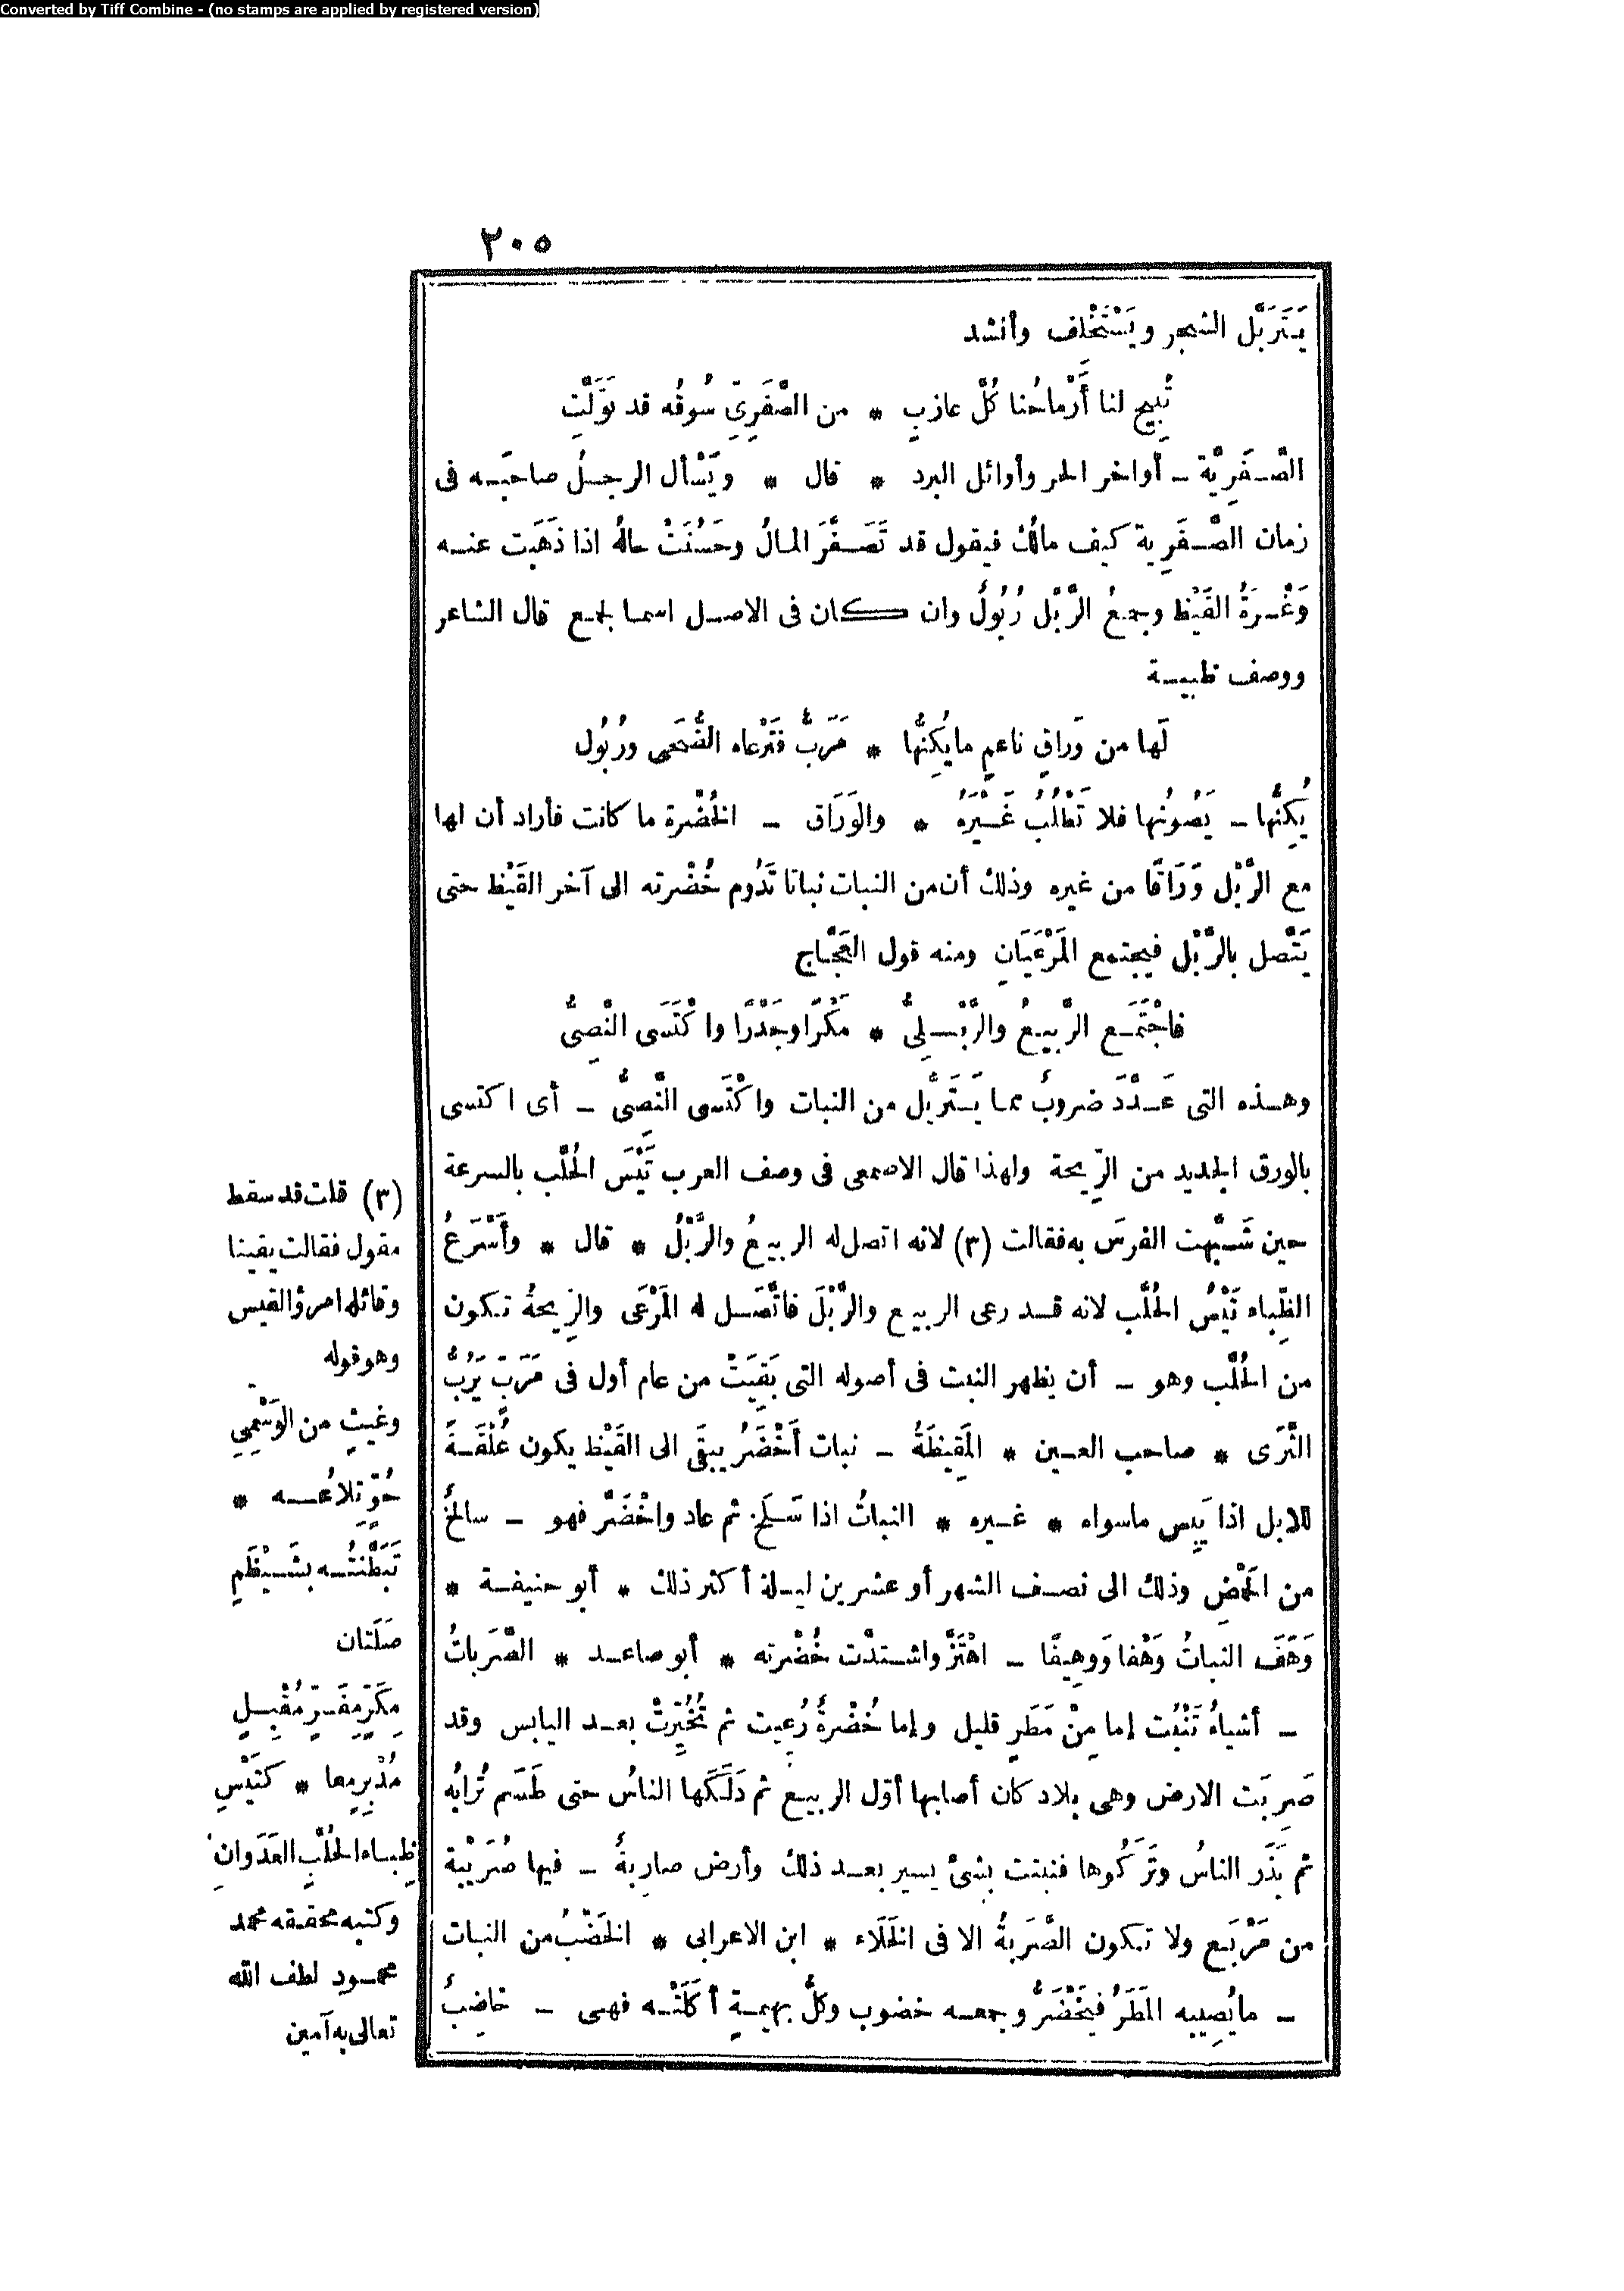 Converted by Tiff Combine - (no stamps are applied by registered version)
٢٠٥
يَتَرَبَّل الشجر ويَسْتَخْلف وأنشد
تُبِيح لنا أَرْماحُنا كُلَّ عازبٍ * من الصَّفَرِىّ سُوقُه قد تَوَلَّتِ
الصَّفَرِيَّة ـ أواخر الحر وأوائل البرد * قال * ويَسْأل الرجلُ صاحبَه فى
زمان الصَّفَرِية كيف مالُك فيقول قد تَصَفَّرَ المالُ وحَسُنَتْ حالُه اذا ذَهَبَت عنه
وَغْرَةُ القَيْظ وجمعُ الرَّبْل رُبُولُ وان كان فى الاصل اسما لجمع قال الشاعر
ووصف ظبية
لَها من وَراقٍ ناعمٍ مايُكِنُّها * مَرَبٌّ فَتَرْعاه الضُّحَى ورُبُول
يُكِنُّها ـ يَصُونُها فلا تَطْلُبُ غَيْرَهُ * والوَرَاق ـ الخُضْرة ما كانت فأراد أن لها
مع الرَّبْل وَرَاقًا من غيره وذلك أن من النبات نباتا تَدُوم خُضْرته الى آخر القَيْظ حتى
يَتَّصل بالرَّبْل فيجتمع المَرْعَيَانِ ومنه قول العَجَّاج
فاجْتَمَع الرَّبيعُ والرَّبْلِىُّ * مَكْرًا وجَدْرًا واكْتَسَى النَّصِىُّ
وهذه التى عَدَّدَ ضروبٌ مما يَتَرَبَّل من النبات واكْتَسى النَّصىُّ ـ أى اكتسى
بالورق الجديد من الرِّيحة ولهذا قال الاصمعى فى وصف العرب تَيْسَ الحُلَّب بالسرعة
حين شَبَّهت الفرسَ به فقالت (٣) لانه اتصل له الربيعُ والرَّبْلُ * قال * وأَسْرَعُ
الظِّباء تَيْسُ الحُلَّب لانه قد رعى الربيع والرَّبْلَ فاتَّصَل له المَرْعَى والرِّيحةُ تكون
من الحُلَّب وهو ـ أن يظهر النبت فى أصوله التى بَقِيَتْ من عام أول فى مَرَبّ يَرُبُّ
الثَّرَى * صاحب العين * المَقِيظَةُ ـ نبات أَخْضَرُ يبقَى الى القَيْظ يكون عُلْقَةً
للابل اذا يَبِس ماسواه * غيره * النباتُ اذا سَلَخ ثم عاد واخْضَرَّ فهو ـ سالخٌ
من الحَمْضِ وذلك الى نصف الشهر أو عشرين ليلة أكثر ذلك * أبو حنيفة *
وَهَفَ النباتُ وَهْفا ووَهِيفًا ـ اهْتَزَّ واشتدَّت خُضْرته * أبو صاعد * الصَّرَباتُ
ـ أشياءُ تَنْبُت إما مِنْ مَطَرٍ قليل وإما خُضْرةٌ رُعِيت ثم تُخُيِّرَتْ بعد اليابس وقد
صَرِبَت الارض وهى بلاد كان أصابها أوّل الربيع ثم دَلَكَها الناسُ حتى طَسَم تُرابُه
ثم بَدَّر الناسُ وتَرَكُوها فنبتت بشئ يسير بعد ذلك وأرض صاربةٌ ـ فيها صُرَيْبة
من مَرْبَع ولا تكون الصَّرَبةُ الا فى الخَلَاء * ابن الاعرابى * الخَضْبُ من النبات
ـ مايُصِيبه المَطَرُ فيَخْضَرُّ وجمعه خضوب وكلُّ بهيمةٍ أكَلَتْه فهى ـ خاضِبٌ
(٣) قلت قد سقط
مقول فقالت يقينا
وقائله امرؤ القيس
وهو قوله
وغيثٍ من الوَسْمِىِ
حُوٍّ تِلاعُه *
تَبَطَّنْتُه بشَيْظَمٍ
صَلَتان
مِكَرٍّ مِفَرٍّ مُقْبِلٍ
مُدْبِرٍ معا * كتَيْسِ
ظِباء الحُلَّبِ العَدَوانِ
وكتبه محققه محمد
محمود لطف الله
تعالى به آمين